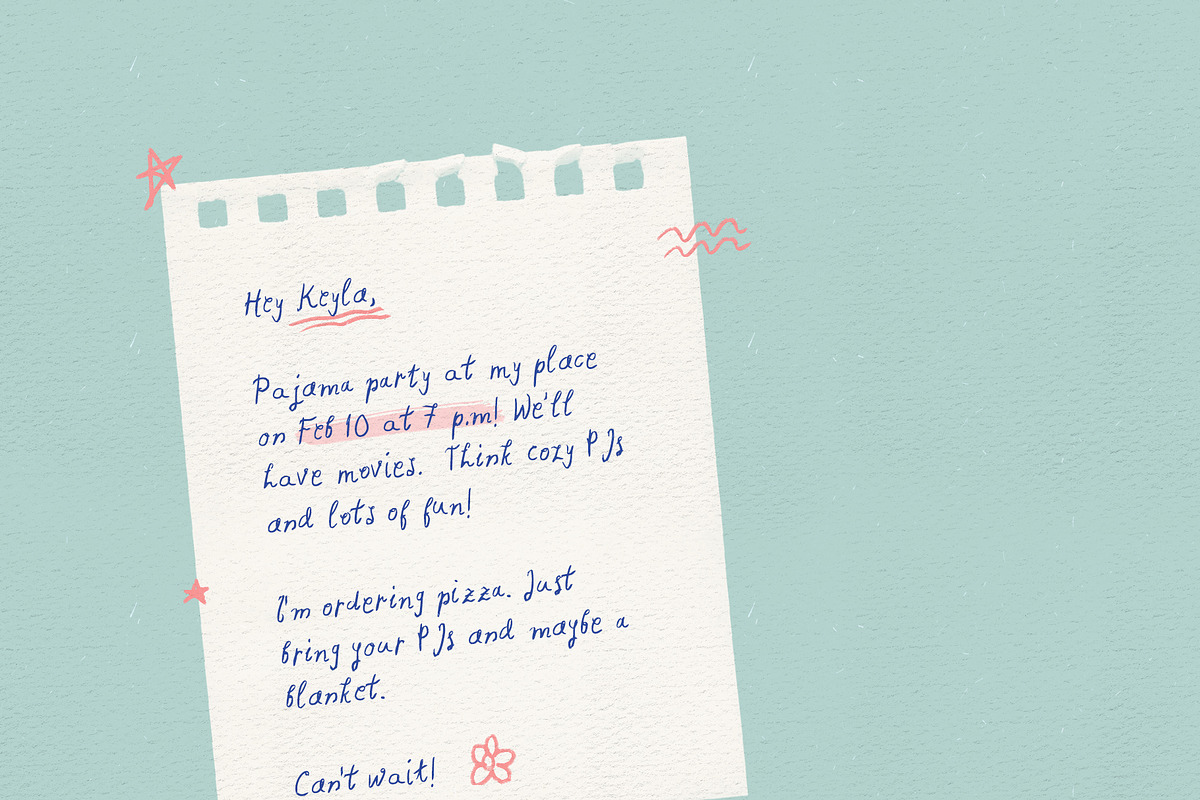 Hey Keyla,
Pajama party at my place
on Feb 10 at 7 p.m! We'll
have movies. Think cozy PJs
and lots of fun!
I'm ordering pizza. Just
bring your PJs and maybe a
blanket.
Can't wait!